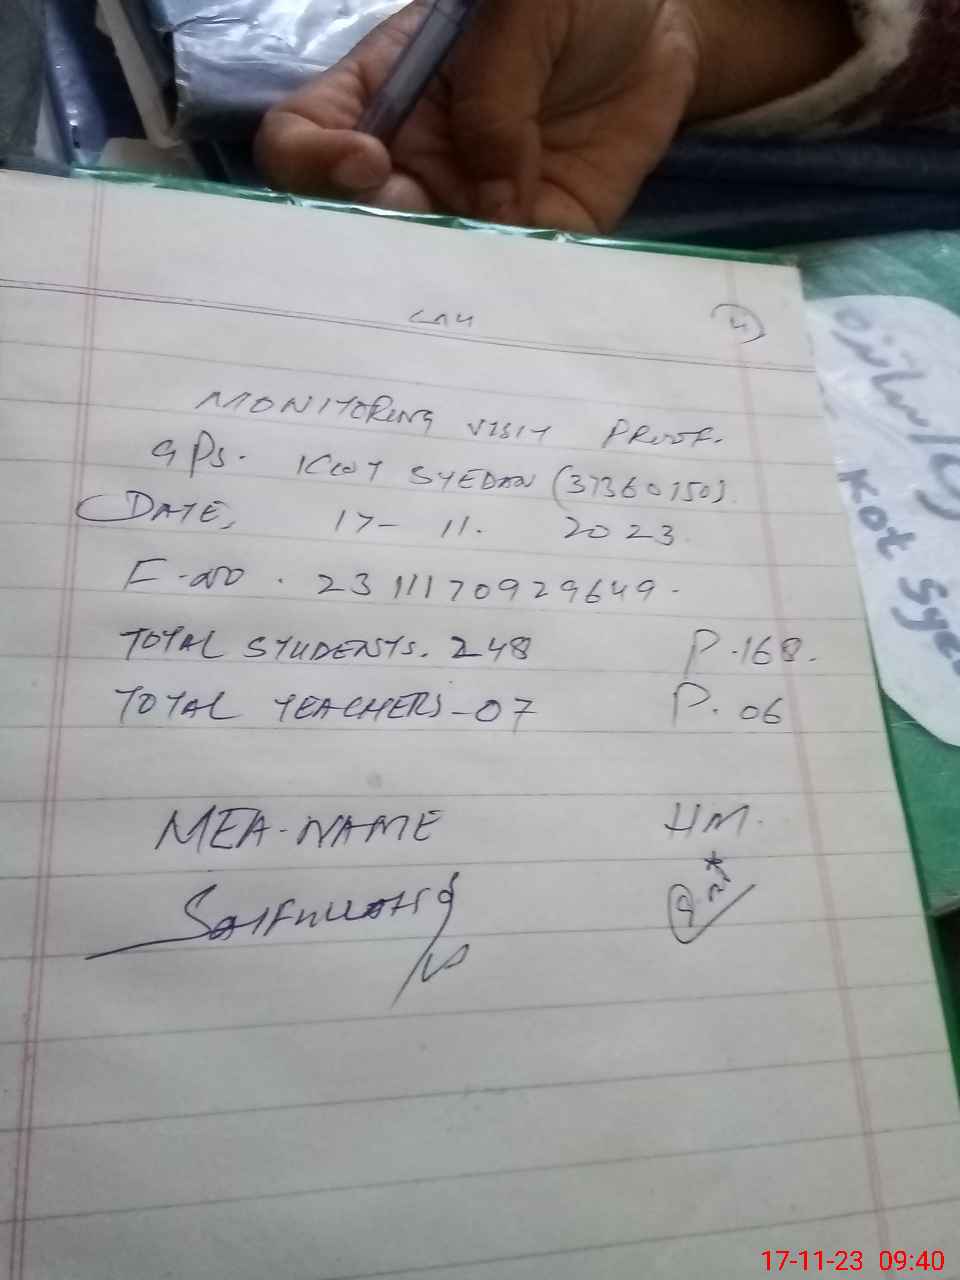 4
MONITORING VISIT PROOF.
GPS. KOT SYEDAN (37360150).
DATE, 17-11.2023.
F-NO. 2311170929649.
TOTAL STUDENTS. 248 P.168.
TOTAL TEACHERS-07 P.06
MEA-NAME HM.
SAIFULLAH
Kot Sye
17-11-23 09:40